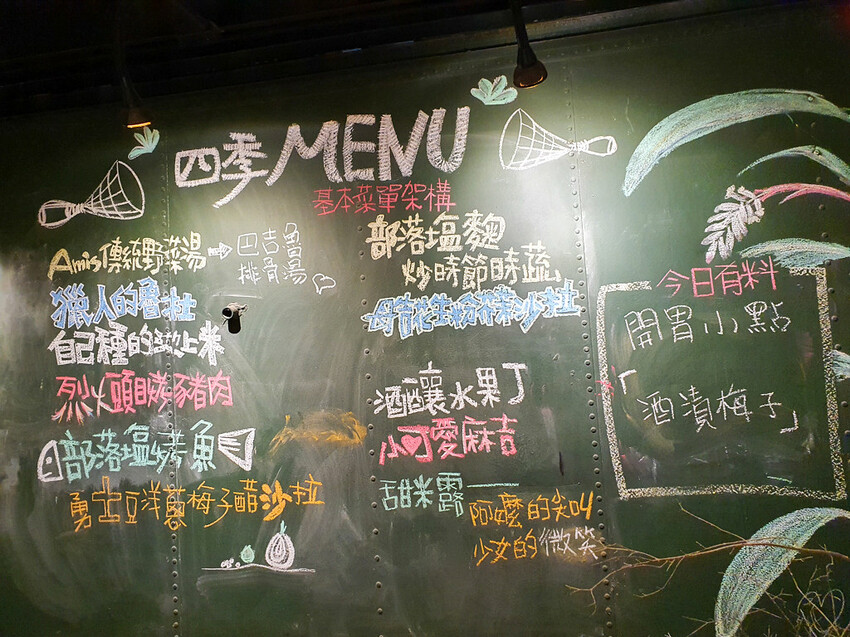 四季MENU
基本菜單架構
Amis傳統野菜湯→巴吉魯
排骨湯
獵人的魯杜
自己種的欸上米
烈火頭目烤豬肉
部落塩烤魚
勇士豆洋蔥梅子醋沙拉
部落塩麴
炒時節時蔬
花生粉
沙拉
酒釀水果丁
小可愛麻吉
甜米露
阿嬤的尖叫
少女的微笑
今日有料
開胃小點
「酒漬梅子」